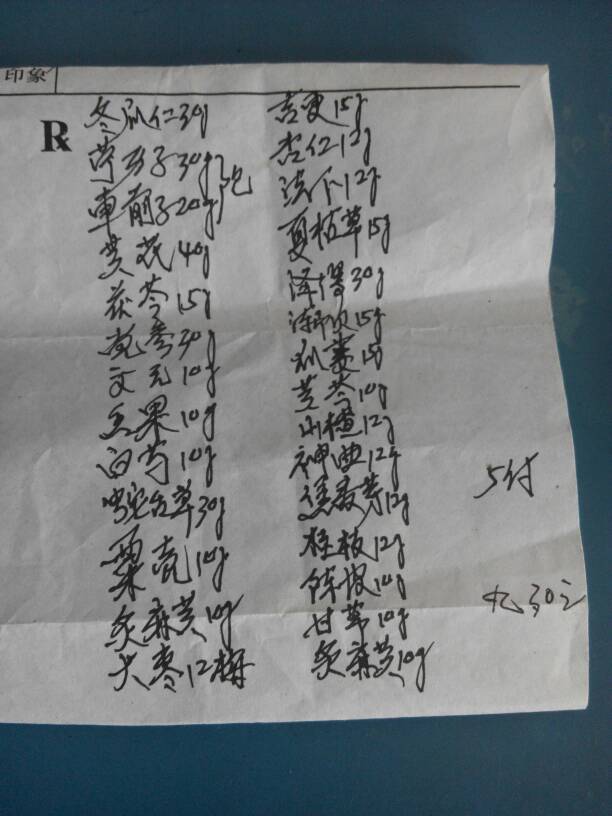 印象
Rx
冬瓜仁30g
葶苈子30g
车前子20g 包
黄芪40g
茯苓15g
党参30g
文元10g
玉果10g
白芍10g
蛇舌草30g
粟壳10g
炙麻黄10g
大枣12梅
吉更15g
杏仁12g
法下12g
夏枯草15g
泽泻30g
浙贝15g
瓜蒌15g
黄芩10g
山楂12g
神曲12g
焦麦芽12g
桂板12g
陈皮10g
甘草10g
炙麻黄10g
5付